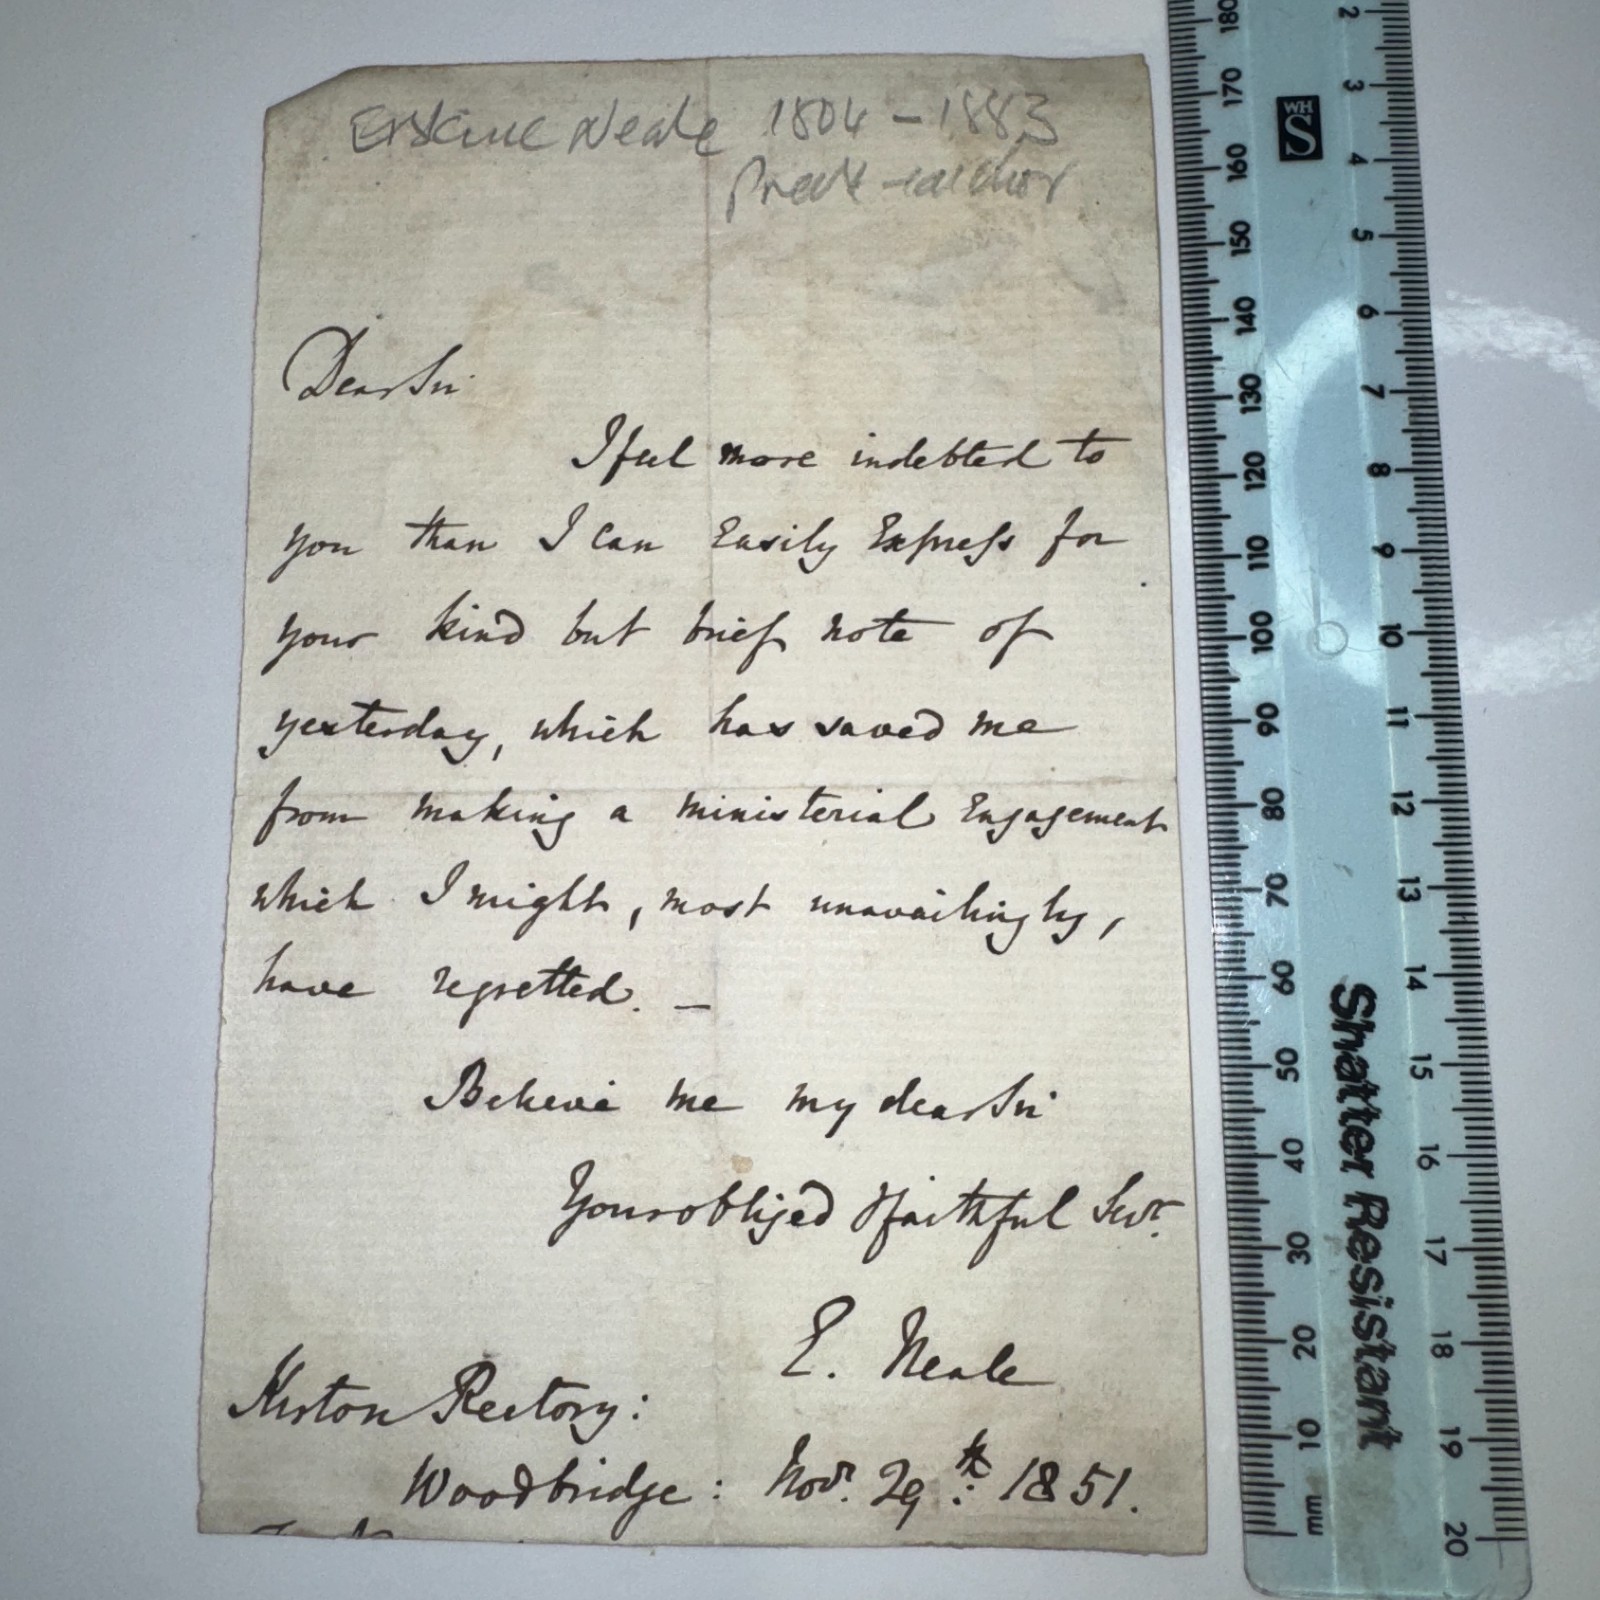 Erskine Neale 1804 – 1883
author
Dear Sir
I feel more indebted to
you than I can Easily Express for
your kind but brief note of
yesterday, which has saved me
from making a ministerial Engagement
which I might, most unavailingly,
have regretted. —
Believe me my dear Sir
Your obliged & faithful Servt.
E. Neale
Kirton Rectory:
Woodbridge: Novr. 29th: 1851.
180 170 160 150 140 130 120 110 100 90 80 70 60 50 40 30 20 10 mm
WHS
Shatter Resistant
2 3 4 5 6 7 8 9 10 11 12 13 14 15 16 17 18 19 20